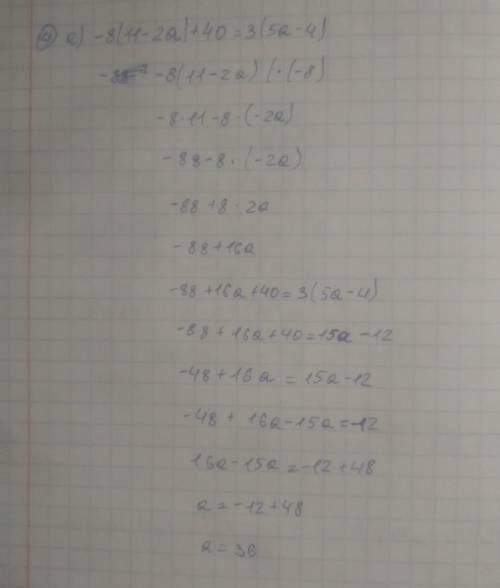 ④ a) -8(11-2a)+40=3(5a-4)
-8(11-2a) (·(-8)
-8·11-8·(-2a)
-88-8·(-2a)
-88+8·2a
-88+16a
-88+16a+40=3(5a-4)
-88+16a+40=15a-12
-48+16a=15a-12
-48+16a-15a=-12
16a-15a=-12+48
a=-12+48
a=36